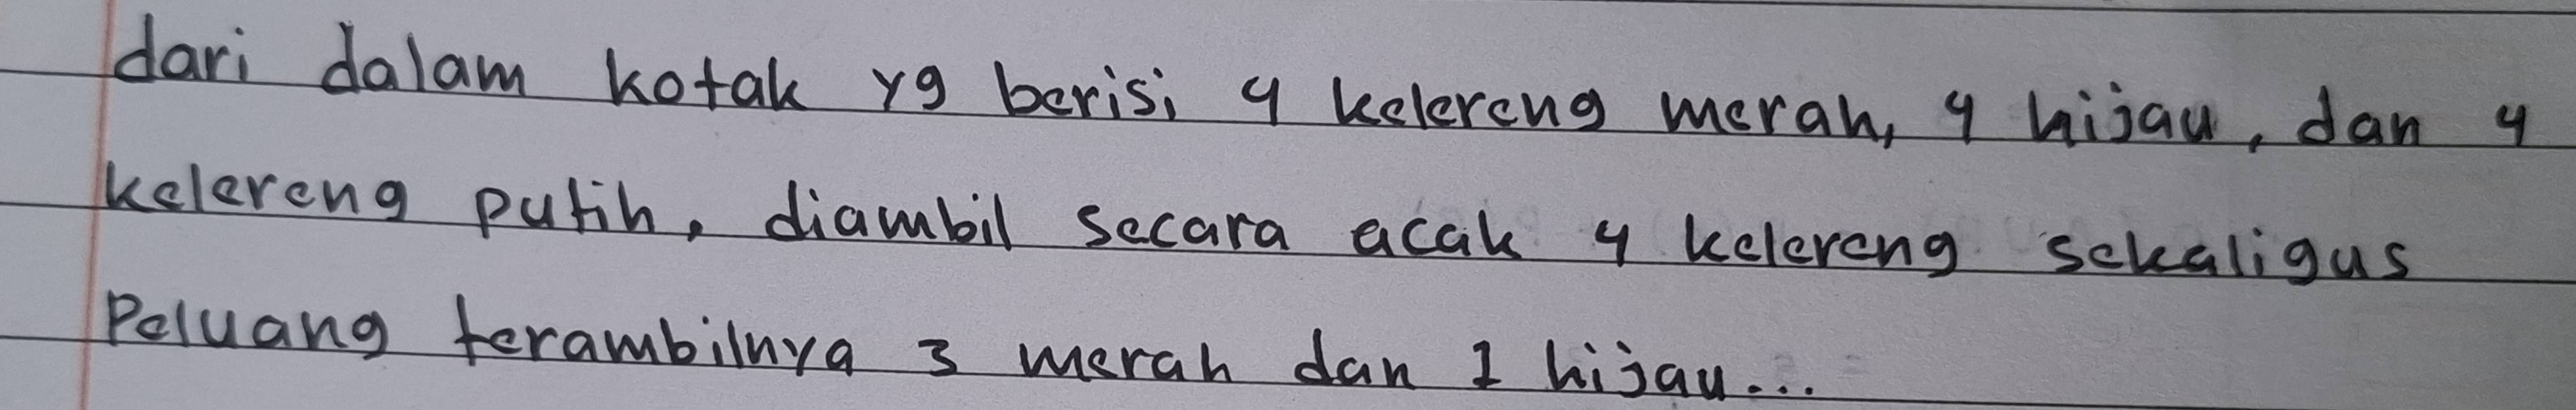 dari dalam kotak yg berisi 4 kelereng merah, 4 hijau, dan 4
kelereng putih, diambil secara acak 4 kelereng sekaligus
Peluang terambilnya 3 merah dan 1 hijau...